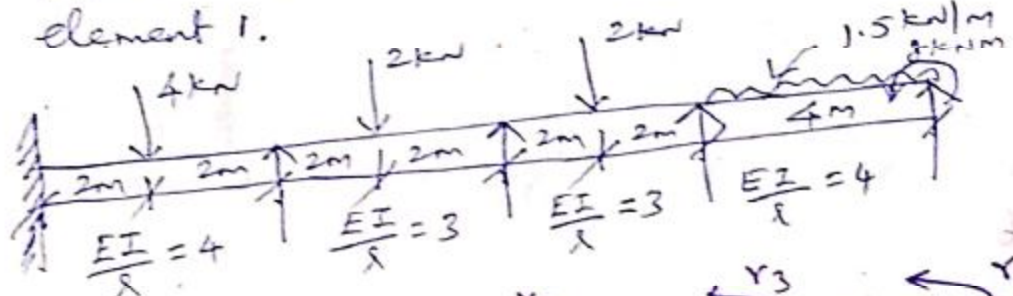 element 1.
4kN 2kN 2kN 1.5 kN/m
kNm
2m 2m 2m 2m 2m 2m 4m
EI/l = 4 EI/l = 3 EI/l = 3 EI/l = 4
r3 r